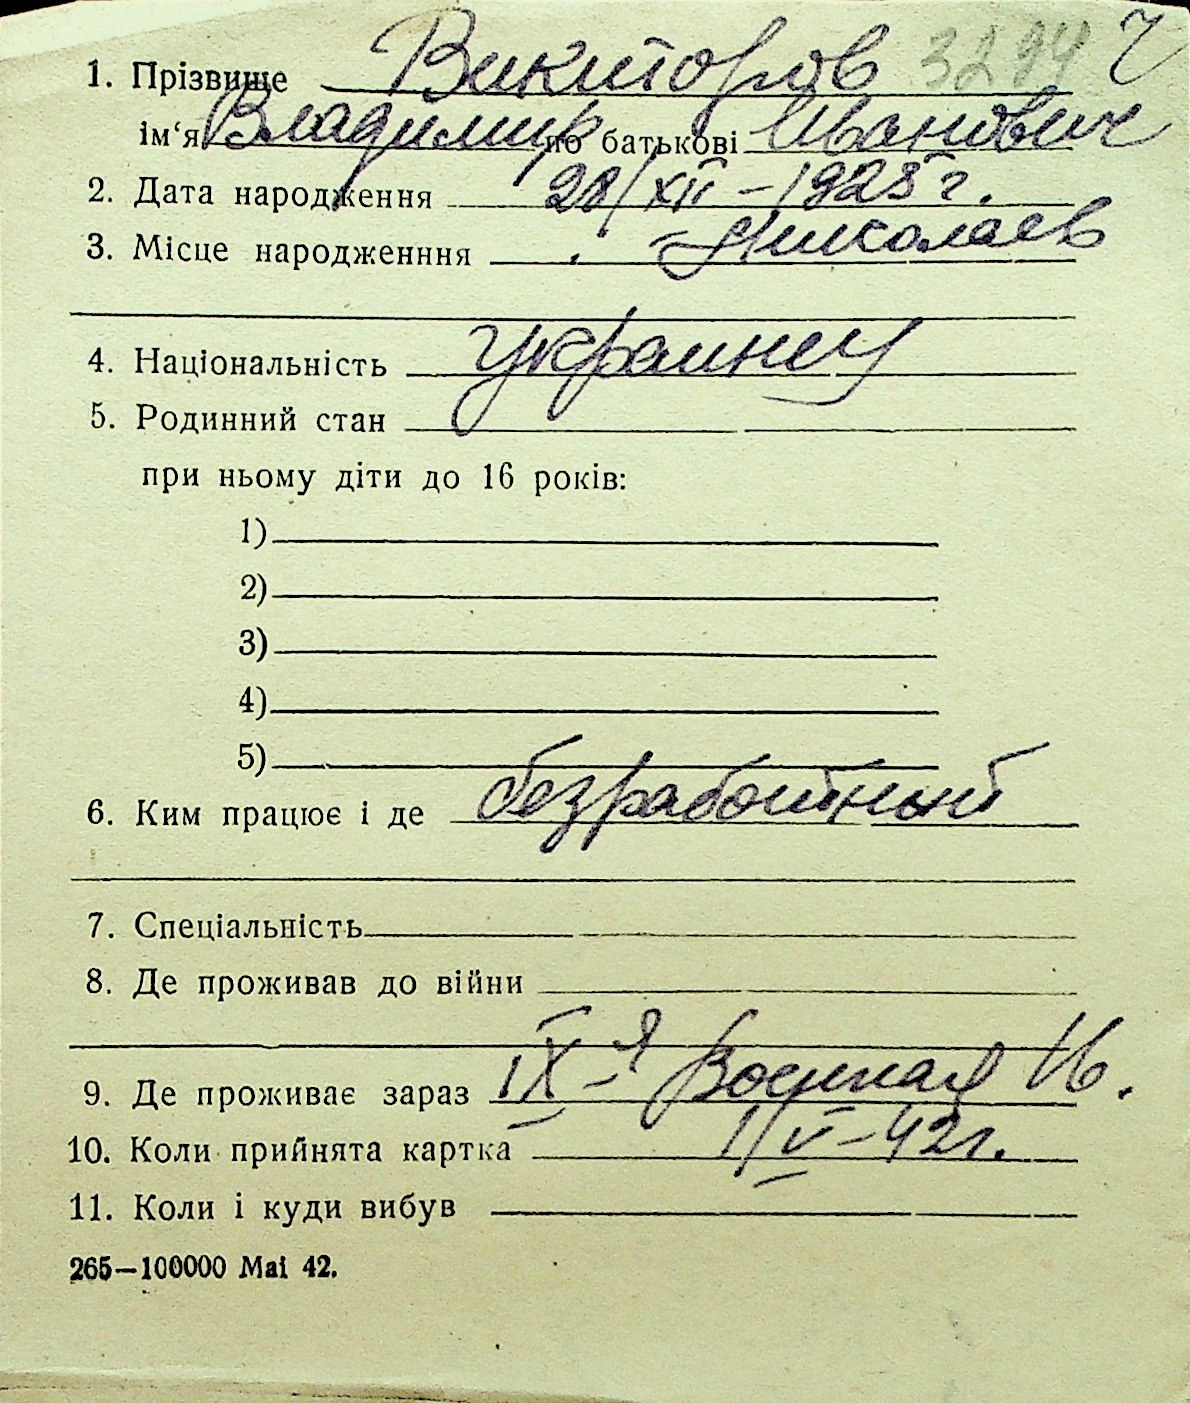 1. Прізвище Викторов 3294
ім‘я Владимир по батькові Иванович
2. Дата народження 28/XII – 1925 г.
3. Місце народженння Николаев
4. Національність украинец
5. Родинний стан
при ньому діти до 16 років:
1)
2)
3)
4)
5)
6. Ким працює і де безработный
7. Спеціальність
8. Де проживав до війни
9. Де проживає зараз IX-я Военная 16.
10. Коли прийнята картка 1/V – 42 г.
11. Коли і куди вибув
265—100000 Mai 42.